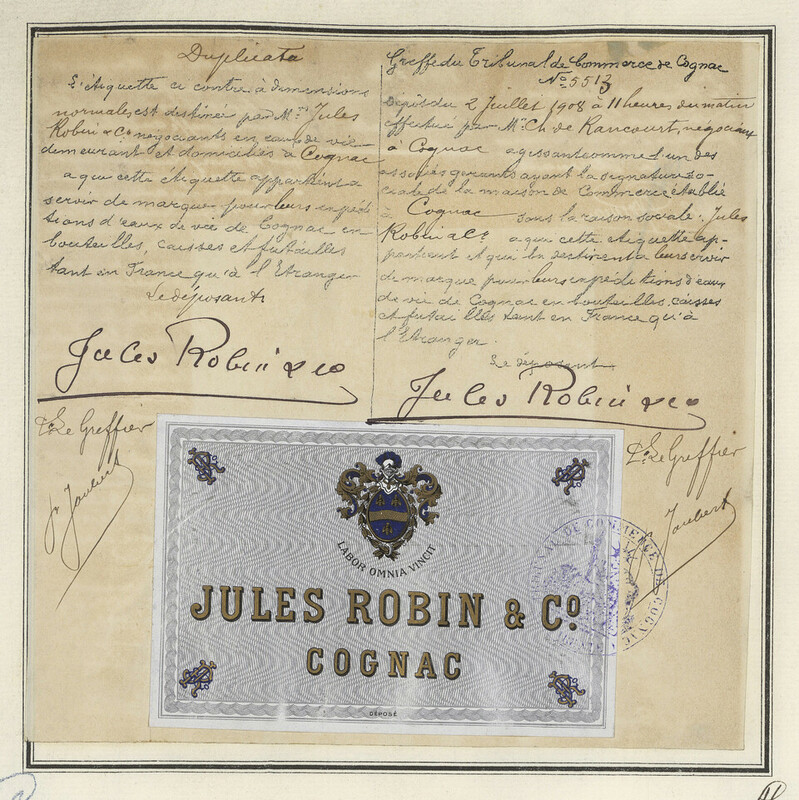 Duplicata
L'étiquette ci contre, à dimensions
normales, est destinée par Mrs Jules
Robin & Co négociants en eaux de vie
demeurant et domiciliés à Cognac
a qui cette étiquette appartient a
servir de marque pour leurs expédi
tions d'eaux de vie de Cognac en
bouteilles, caisses et futailles
tant en France qu'à l'Etranger
Le déposant
Jules Robin & Co
Pr. Le Greffier
Joubert
Greffe du Tribunal de Commerce de Cognac
No 5513
Dépôt du 2 Juillet 1908 à 11 heures du matin
effectué par Mr. Ch. de Rancourt, négociant
à Cognac agissant comme l'un des
associés gérants ayant la signature so-
ciale de la maison de Commerce établie
à Cognac sous la raison sociale: Jules
Robin & Co a qui cette étiquette ap-
partient et qui la destinent a leur servir
de marque pour leurs expéditions d'eaux
de vie de Cognac en bouteilles, caisses
et futailles tant en France qu'à
l'Etranger.
Le déposant
Jules Robin & Co
Pr. Le Greffier
Joubert
LABOR OMNIA VINCIT
JULES ROBIN & Co.
COGNAC
DÉPOSÉ
DE COMMERCE DE COGNAC